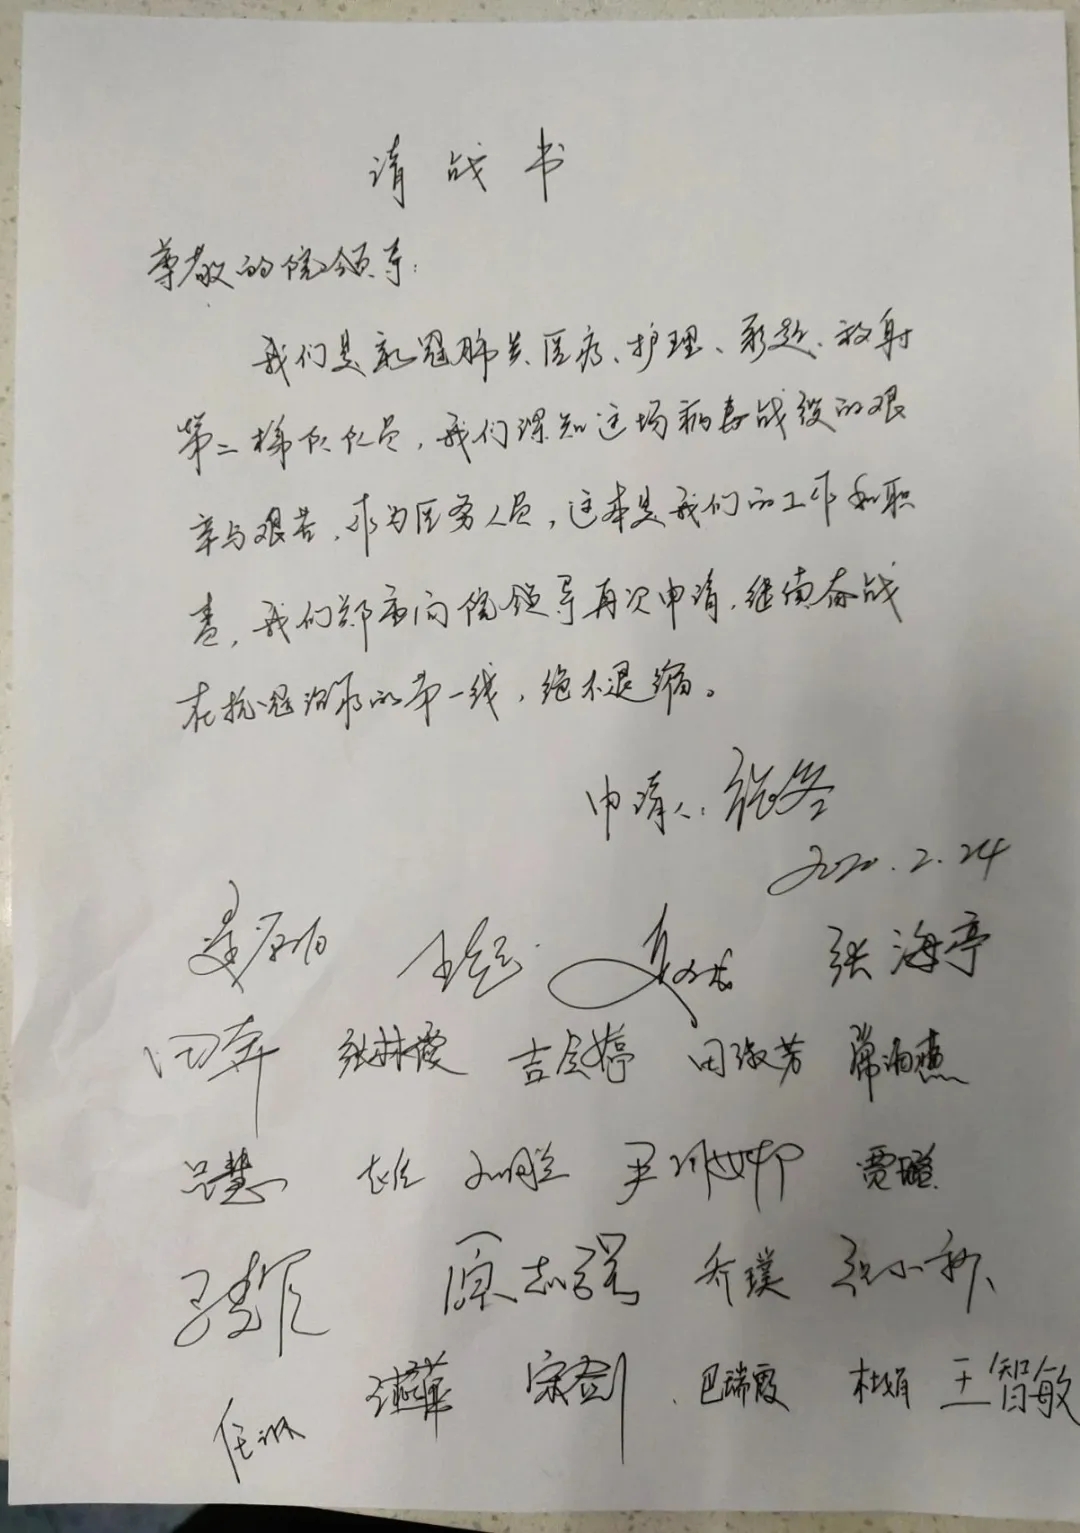 请战书
尊敬的院领导：
我们是新冠肺炎医疗、护理、影超、放射
第二梯队队员，我们深知这场病毒战役的艰
辛与艰苦，作为医务人员，这本是我们的工作和职
责，我们郑重向院领导再次申请，继续奋战
在抗冠治疗的第一线，绝不退缩。
申请人：张冬
2020.2.24
张海亭
田奔 张林霞 吉会婷 田淑芳
吕慧 尹 贾
原志强 乔璞 张小
宋剑 巴瑞霞 杜娟 王智敏
任